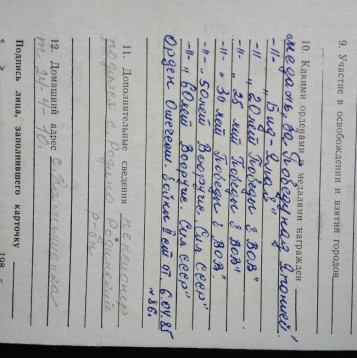 9. Участие в освобождении и взятии городов
10. Какими орденами и медалями награжден
медаль „За победу над Японией"
-//- „
-//- „20 лет Победы в ВОВ"
-//- „25 лет Победы в ВОВ"
-//- „30 лет Победы в ВОВ"
-//- „50 лет Вооруж Сил СССР"
-//- „60 лет Вооруж Сил СССР"
Орден Отечест. Войны II ст от 6.04.85
11. Дополнительные сведения пенсионер
родился с
12. Домашний адрес с
Подпись лица, заполнившего карточку
198